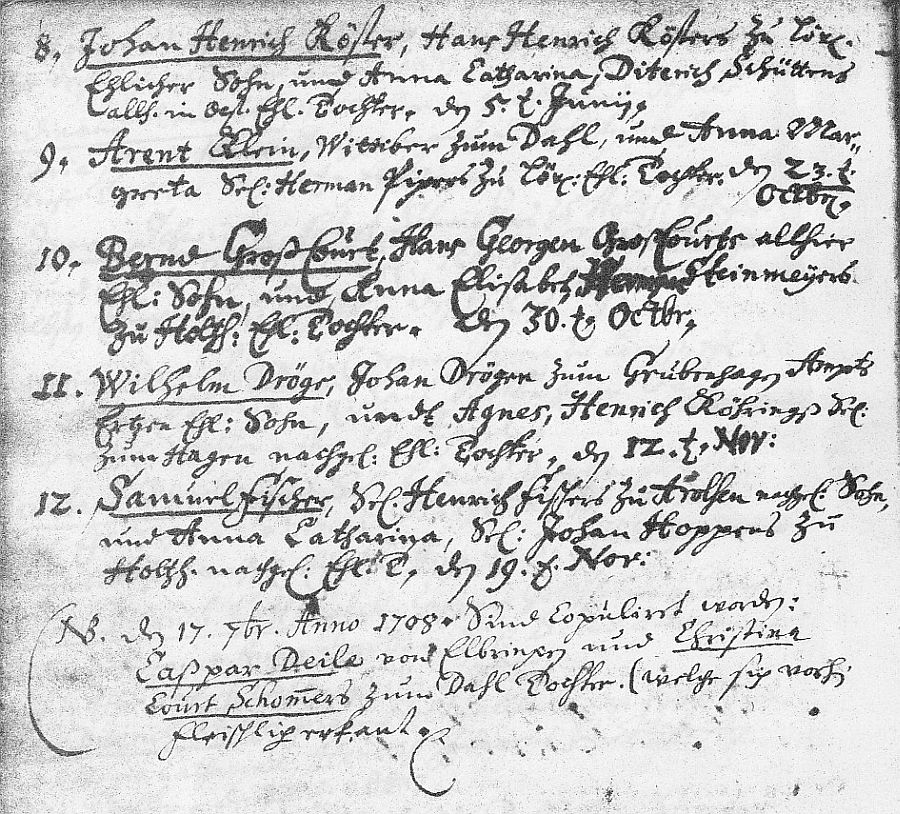 8, Johan Henrich Köster, Hans Henrich Kösters zu Löx.
Ehlicher Sohn, und Anna Catharina, Diterich Schüttens
allh. in Ehl. Tochter. den 5. t. Junij,
9, Arent Klein, Wittiber zum Dahl, und Anna Mar-
greeta Sel: Herman Pipers zu Löx: Ehl: Tochter. den 23. t.
Octbr,
10, Bernd Großcourt, Hans Georgen Großcourts allhier
Ehl: Sohn, und Anna Elisabet, Steinmeyers
zu Holtzh: Ehl: Tochter. den 30. t. Octbr,
11. Wilhelm Dröge, Johan Drögen zum Grubenhagen Ampts
Ertzen Ehl: Sohn, undt Agnes, Henrich Röhringß Sel:
zum Hagen nachgel: Ehl: Tochter, den 12. t. Nov:
12. Samuel Fischer, Sel. Henrich Fischers zu Arolsen nachgel: Sohn,
und Anna Catharina, Sel: Johan Hoppens zu
Holtzh. nachgel: Ehl: T, den 19. t. Nov:
NB. den 17. 7br. Anno 1708. Sind Copuliret worden:
Caßpar Deile von Elbrinxen und Christina
Court Schomers zum Dahl Tochter. (welche sich vorhin
fleischlich erkant.